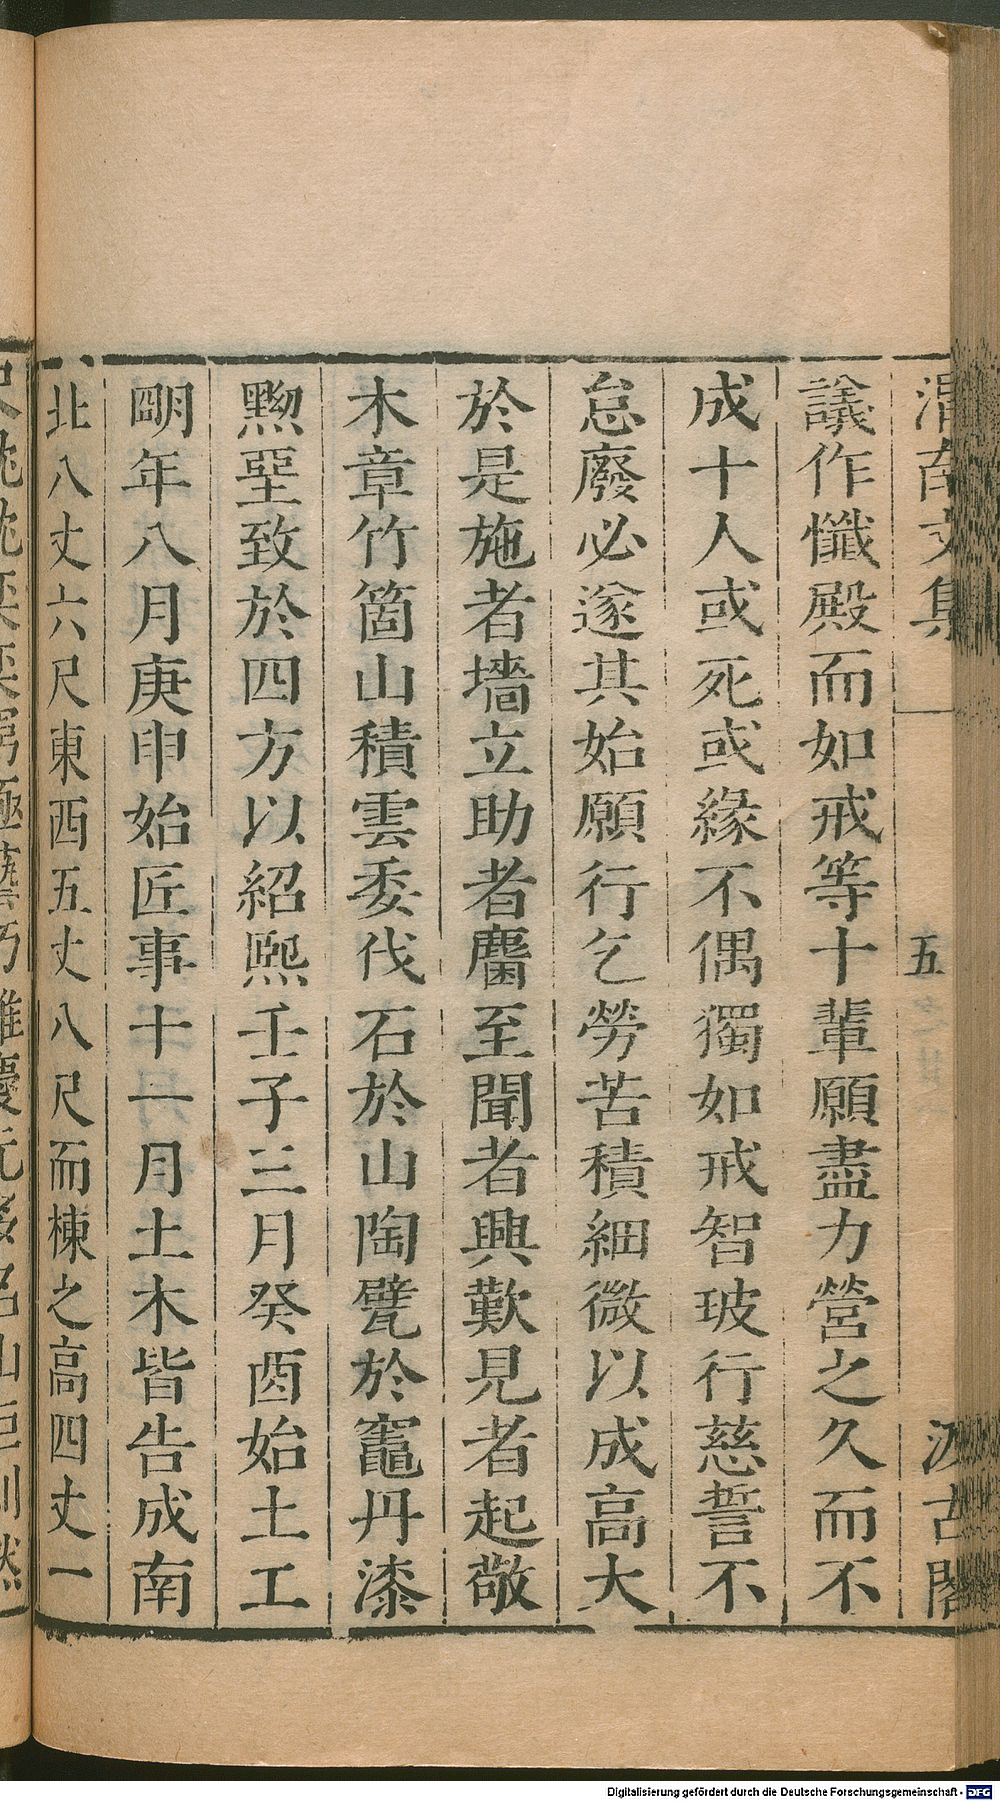 渭南文集 五 汲古閣
議作懺殿而如戒等十輩願盡力營之久而不
成十人或死或緣不偶獨如戒智玻行慈誓不
怠廢必遂其始願行乞勞苦積細微以成高大
於是施者墻立助者麕至聞者興歎見者起敬
木章竹箇山積雲委伐石於山陶甓於竈丹漆
黝堊致於四方以紹熙壬子三月癸酉始土工
明年八月庚申始匠事十一月土木皆告成南
北八丈六尺東西五丈八尺而棟之高四丈一
Digitalisierung gefördert durch die Deutsche Forschungsgemeinschaft - DFG